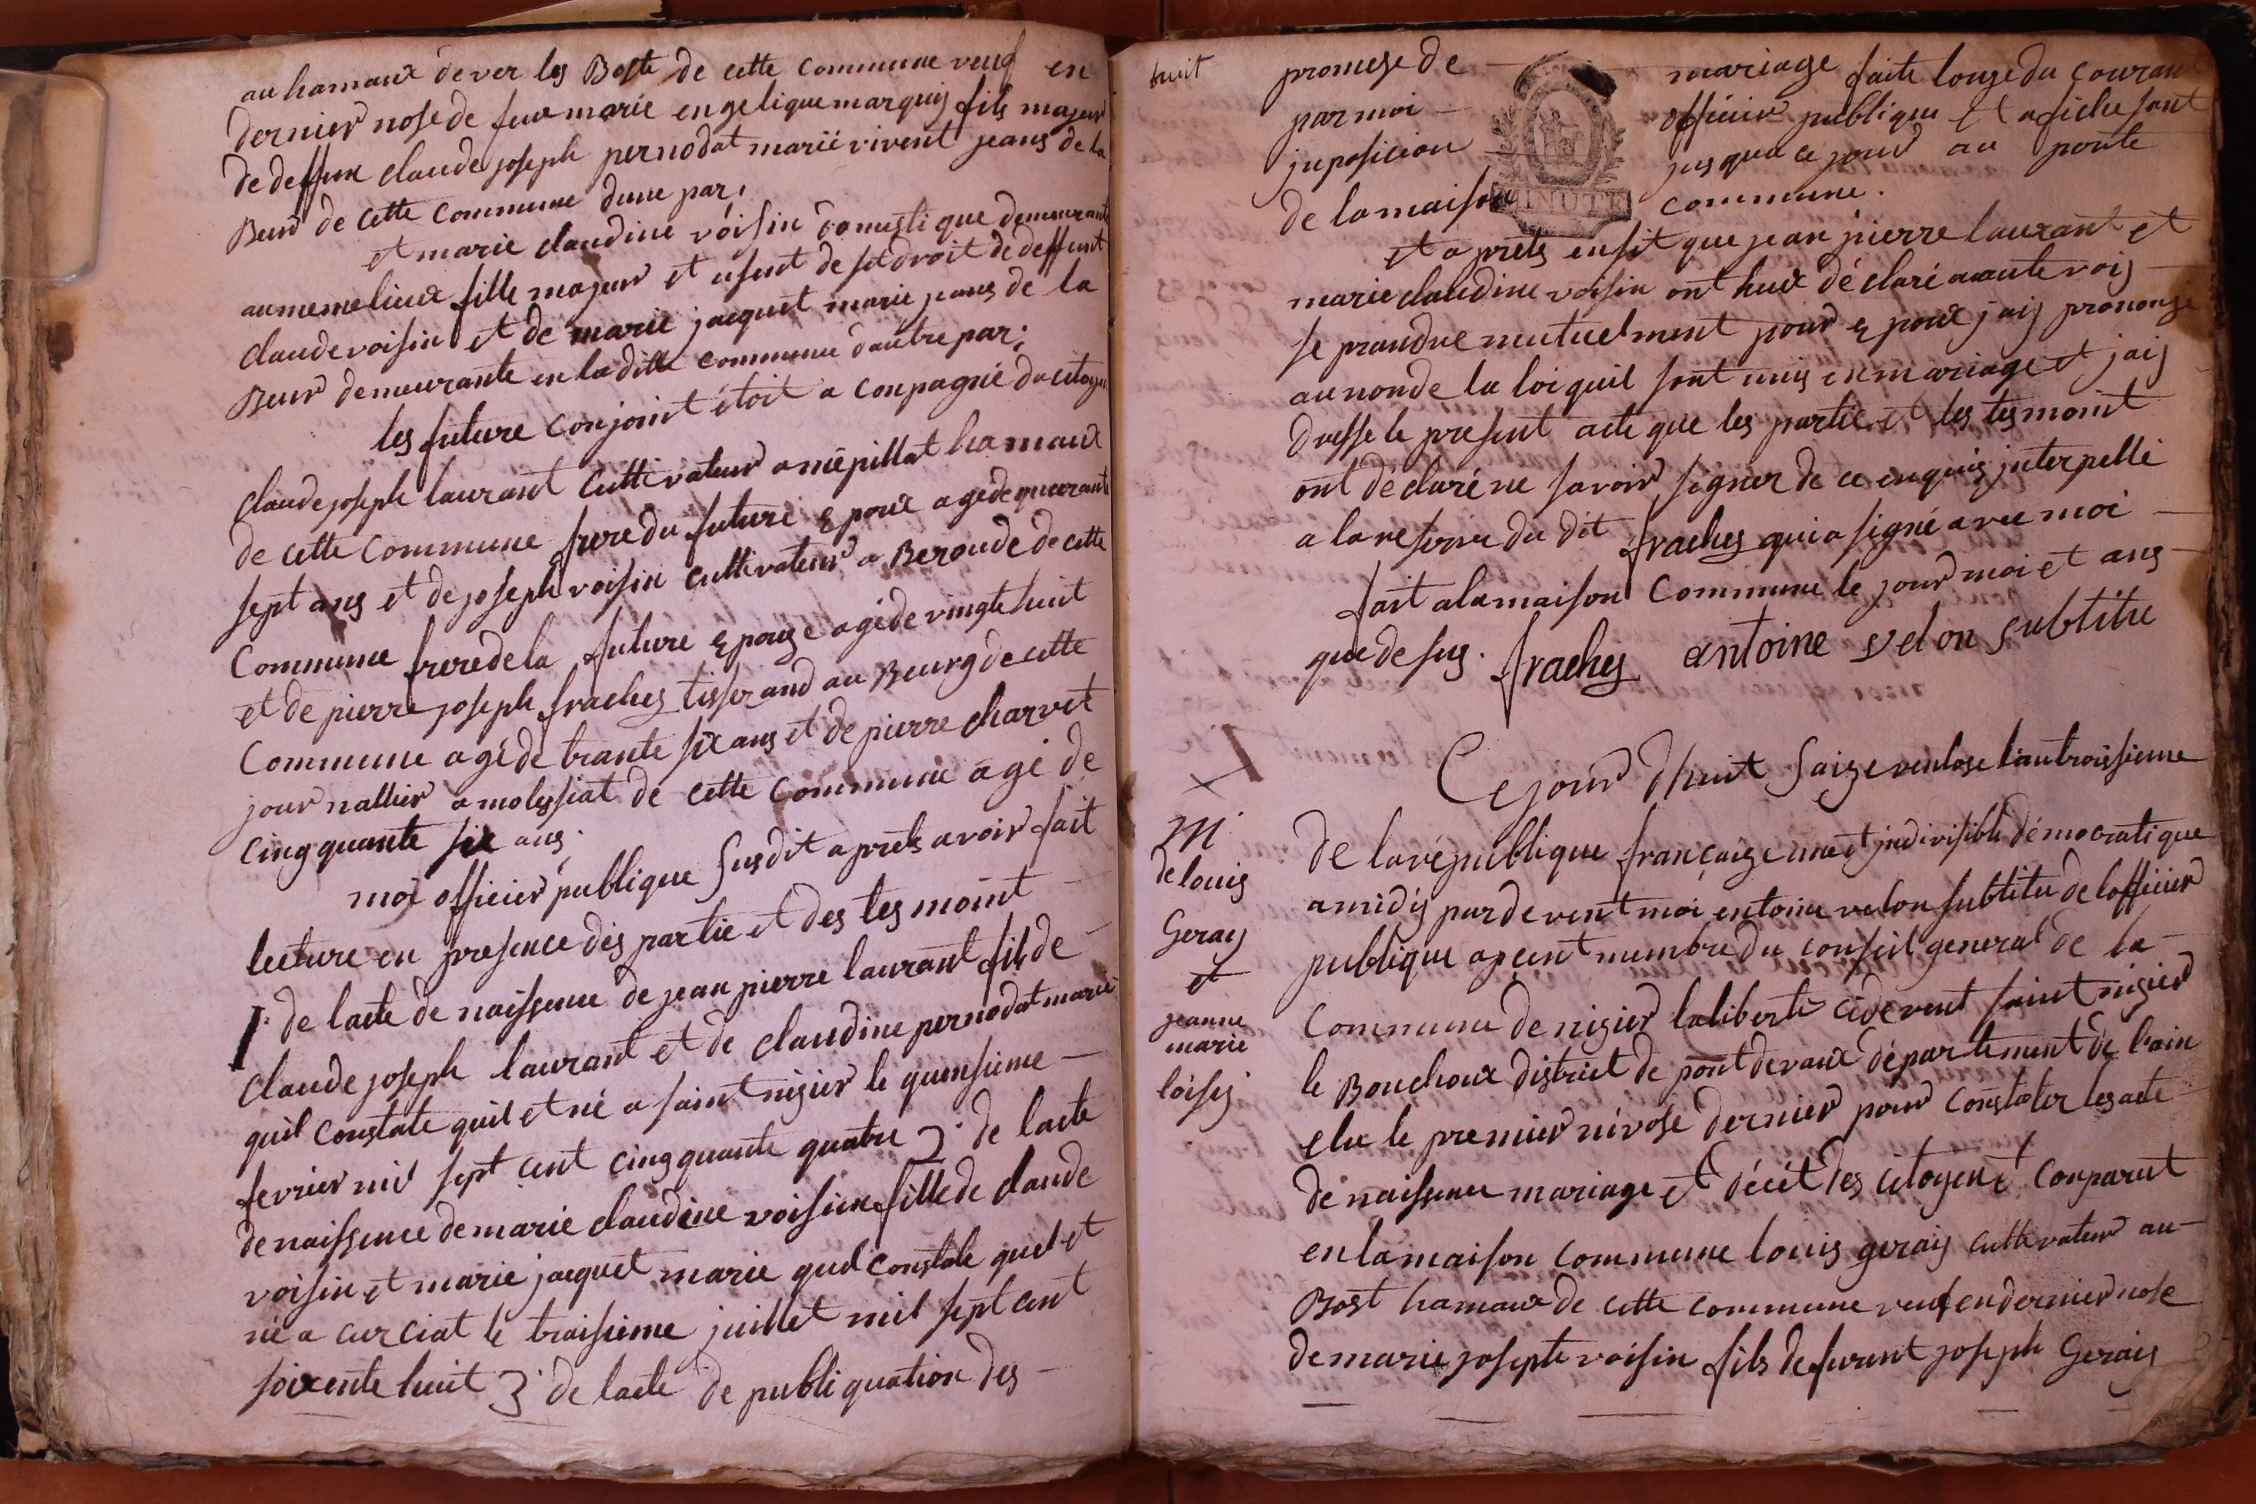 au hamaux de ver les Boste de cette commune veuf en
dernier nose de feue marie engelique marquis fils majeur
de deffunt claude joseph pernodat marié vivent jeans de la
Beur de cette commune dune par,
et marie claudine voisin domestique demeurante
au meme lieux fille majeur et usent de set droit de deffunt
claude voisin et de marie jacquet marie jeans de la
Beur demeurante en la ditte commune dautre par;
les future conjoint étoit a conpagné du citoyen
claude joseph laurant cultivateur a mépillat hamaux
de cette commune frere du future epoux agé de queurante
sept ans et de joseph voisin cultivateur a Beroude de cette
commune frere de la future epouze agé de vingte huit
et de pierre joseph fraches tisserand au Beurg de cette
commune agé de trante six ans et de pierre charvet
journallier a molessiat de cette commune agé de
cinqquante six ans.
moi officier publique susdit a prets avoir fait
lecture en presence des partie et des tesmoint
1° de lacte de naissence de jean pierre laurant fils de
claude joseph laurant et de claudine pernodat marié
quil constate quil et né a saint nizier le quinsieme
fevrier mil sept cent cinqquante quatre 2° de lacte
de naissence de marie claudine voisin fille de claude
voisin et marie jacquet marie quil constate quel et
né a curciat le traisieme juillet mil sept cent
soixente huit 3° de lacte de publiquation des
huit
promese de mariage faite lonze du courant
par moi officier publique et afiche sant
juposicion jusqua ce jour au porte
de la maison commune.
MINUTE
et a prets ensit que jean pierre laurant et
marie claudine voisin ont heux déclaré a aute vois
se prandre mutuelment pour epoux jais prononsé
au non de la loi quil sont unis en mariage et jais
dresse le present acte que les partie et les tesmoint
ont déclaré ne savoir signer de ce enquis jnterpellé
a la reserve du dit fraches qui a signé avec moi
fait a la maison commune le jour moi et ans
que desus. fraches antoine velon subtitu
Ce jour dhuit saize ventose lan troissieme
de la république françaize une et jndivisible démocratique
a midis par devent moi entoine velon subtitu de lofficier
publique ajeint membre du conseil general de la
commune de nizier laliberté cidevent saint nizier
le Bouchoux district de pont de vaux département de lain
elu le premier nivose dernier pour constater les acte
de naissence mariage et décét des citoyen é conparut
en la maison commune louis gerais cultivateur au
Bost hamaux de cette commune veuf en dernier nose
de marie josepte voisin fils de furent joseph Gerais
M
de louis
Geray
et
jeanne
marie
loisy